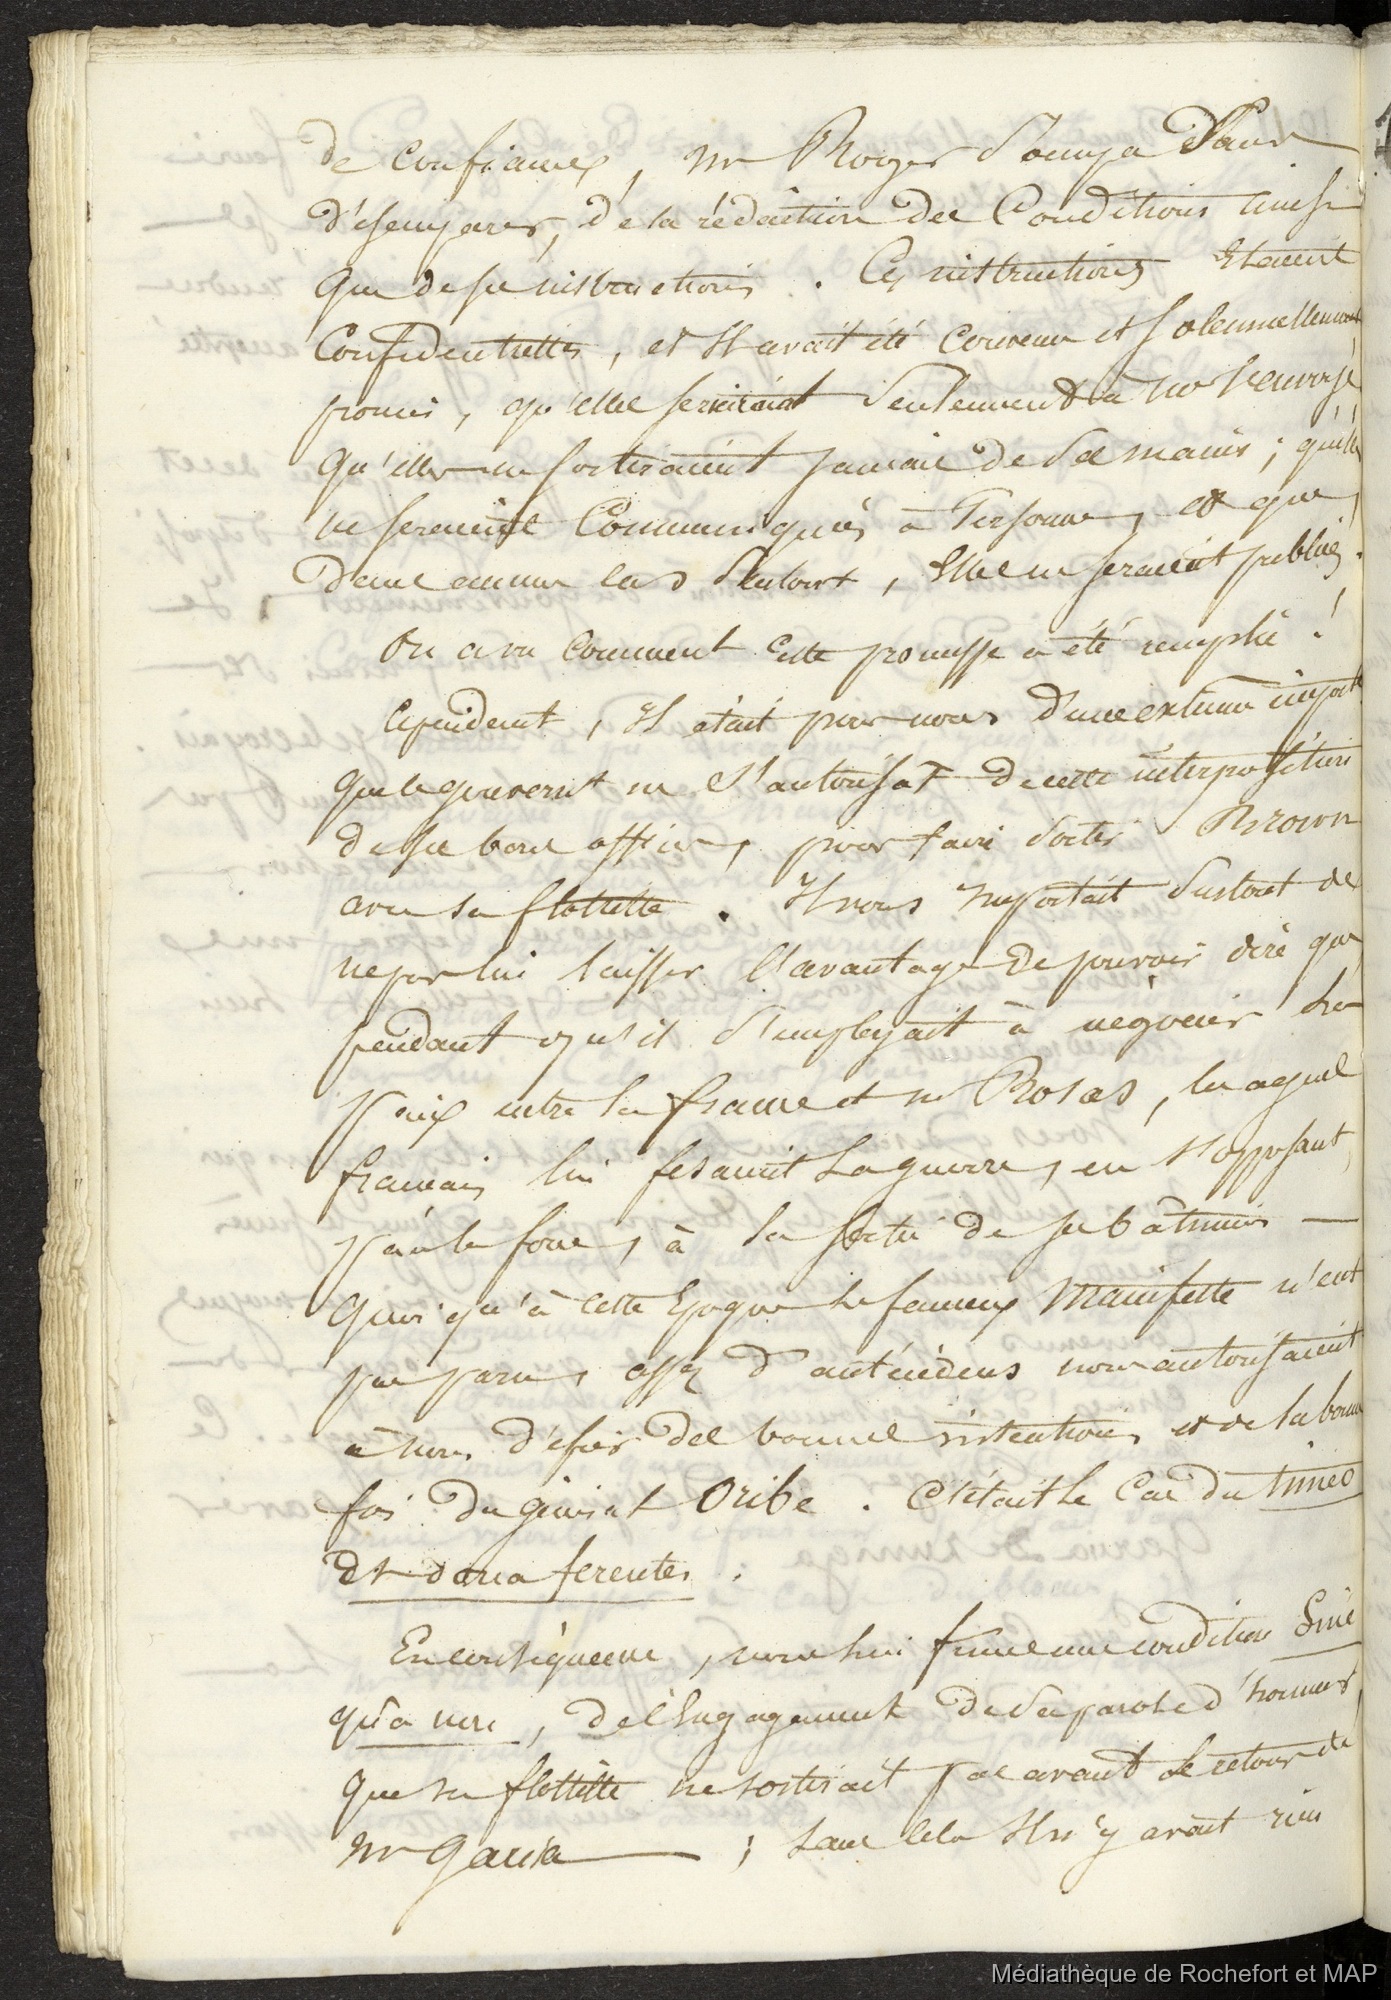 de confiance, Mr Roger s'occupa sans
désemparer, de la rédaction des Conditions ainsi
que de ses instructions. Ces instructions Etaient
Confidentielles, et Il avait été convenu et solennellement
promis, qu'elles serviraient seulement à Mr l'envoyé
qu'elles ne sortiraient jamais de ses mains; qu'elles
ne seraient Communiquées à Personne, et que,
dans aucun cas surtout, Elles ne seraient publiées.
On a vu comment cette promesse a été remplie!
Cependant, Il était pour nous d'une extrême import.
que le gouvernt ne s'autorisat de cette interposition
de ses bons offices, pour faire sortir Brown
avec sa flottille. Il nous importait surtout de
ne pas lui laisser l'avantage de pouvoir dire que,
pendant qu'il s'employait à négocier la
paix entre la france et Mr Rosas, les agens
français lui fesaient la guerre, en s'opposant,
par la force, à la sortie de ses bâtimens —
Quoiqu'à cette Epoque le fameux Manifeste n'eut
pas paru, assez d'antécédens nous autorisaient
à nous défier des bonnes intentions et de la bonne
foi du général Oribe. C'était le Cas du timeo
et dona ferentes.
En conséquence, nous lui fimes une condition Sine
quâ non, de l'Engagement de sa parole d'honneur,
que sa flottille ne sortirait pas avant le retour de
Mr Garcia — ; sans cela Il n'y avait rien
Médiathèque de Rochefort et MAP